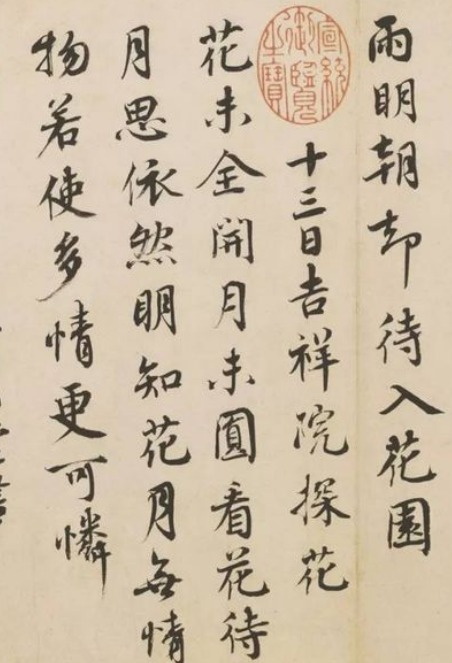 雨明朝却待入花園
宣統
御覽
之寶
十三日吉祥院探花
花未全開月未圓看花待
月思依然明知花月無情
物若使多情更可憐